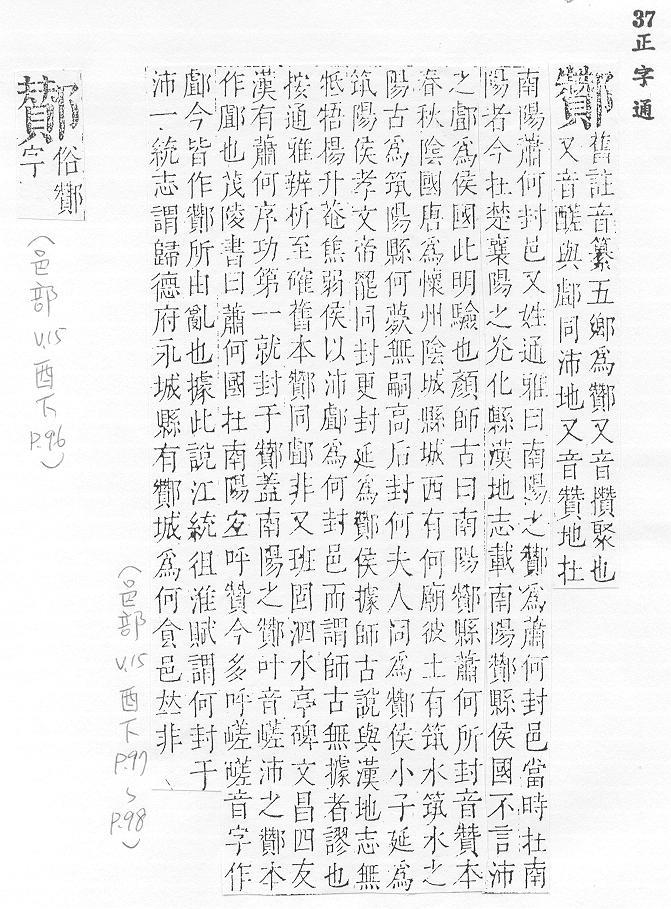 37正字通
酇 舊註音纂五鄉爲酇又音攢聚也
又音醝與䣜同沛地又音贊地在
南陽蕭何封邑又姓通雅曰南陽之酇爲蕭何封邑當時在南
陽者今在楚襄陽之光化縣漢地志載南陽酇縣侯國不言沛
之䣜爲侯國此明驗也顏師古曰南陽酇縣蕭何所封音贊本
春秋陰國唐爲懷州陰城縣城西有何廟彼土有筑水筑水之
陽古爲筑陽縣何薨無嗣高后封何夫人同爲酇侯小子延爲
筑陽侯孝文帝罷同封更封延爲酇侯據師古說與漢地志無
牴牾楊升菴焦弱侯以沛䣜爲何封邑而謂師古無據者謬也
按通雅辨析至確舊本酇同䣜非又班固泗水亭碑文昌四友
漢有蕭何序功第一就封于酇蓋南陽之酇叶音嵯沛之酇本
作䣜也茂陵書曰蕭何國在南陽宜呼贊今多呼嵯嵯音字作
䣜今皆作酇所由亂也據此說江統徂淮賦謂何封于
沛一統志謂歸德府永城縣有酇城爲何食邑𠀤非
（邑部 V.15 酉下 P.97~P.98）
酂 俗酇
字
（邑部 V.15 酉下 P.96）